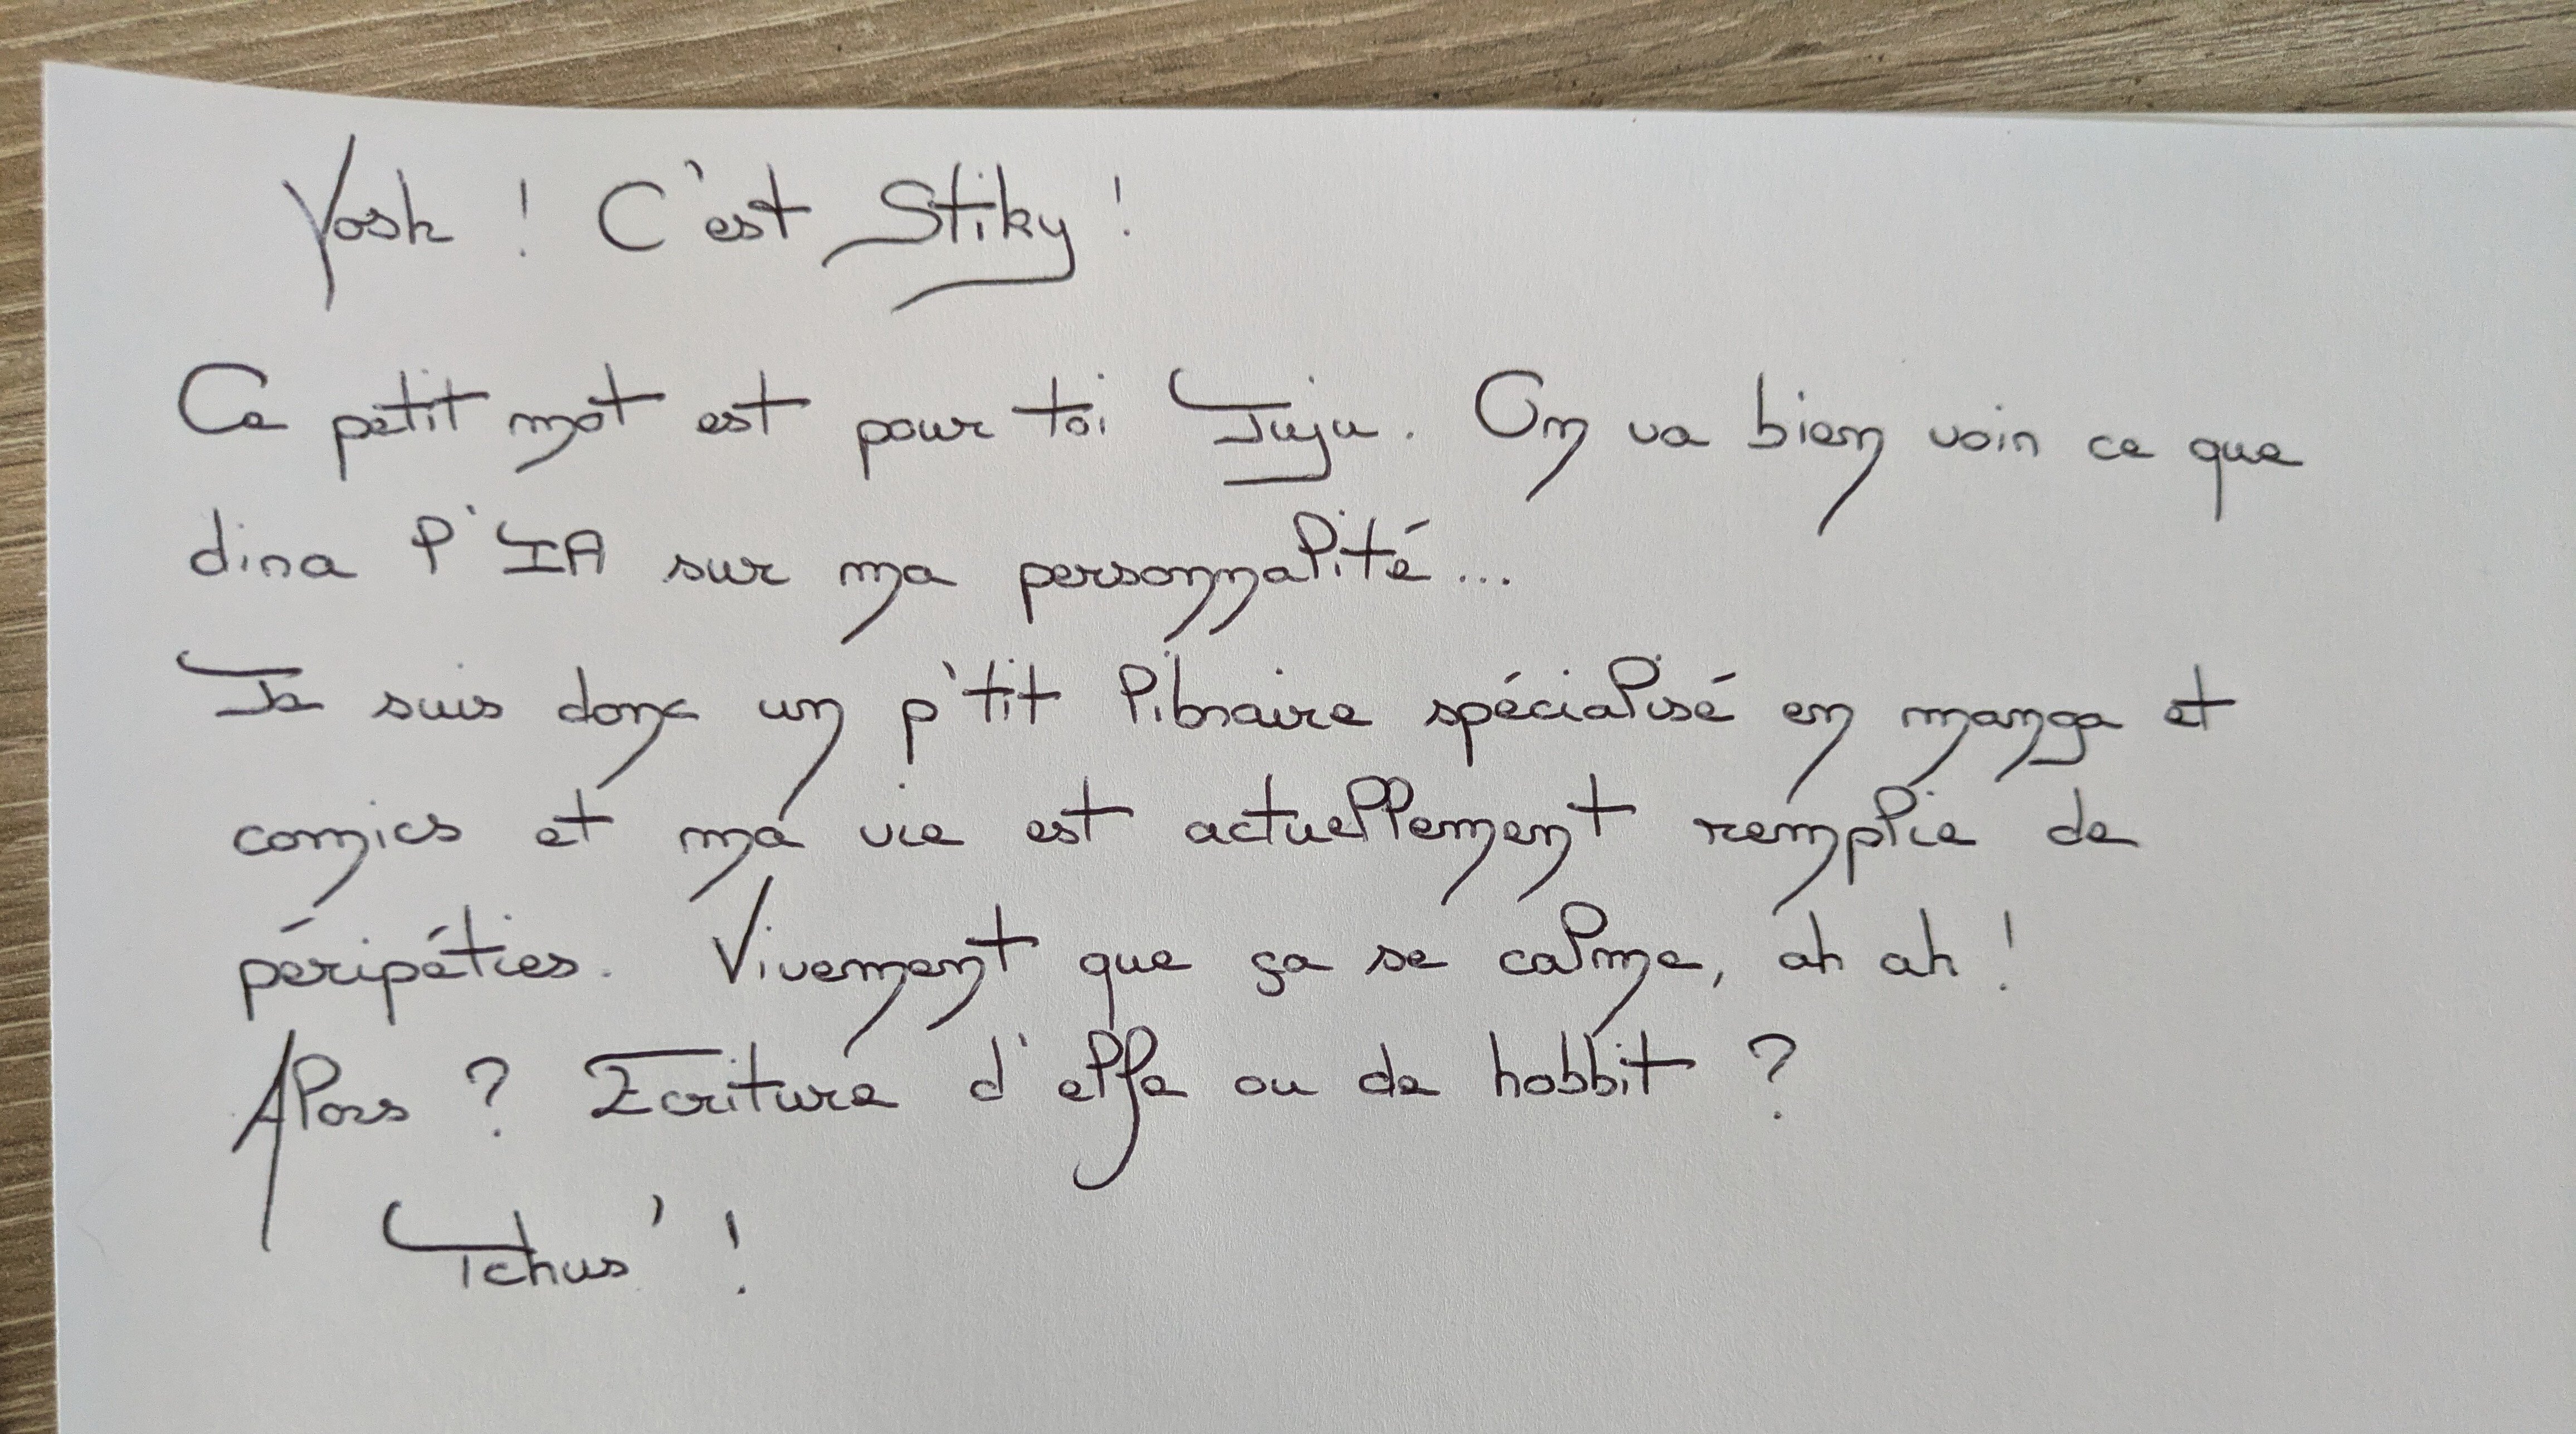 Yosh ! C'est Stiky !
Ce petit mot est pour toi Juju. On va bien voir ce que
dira l'IA sur ma personnalité...
Je suis donc un p'tit libraire spécialisé en manga et
comics et ma vie est actuellement remplie de
péripéties. Vivement que ça se calme, ah ah !
Alors ? Ecriture d'elfe ou de hobbit ?
Tchus' !